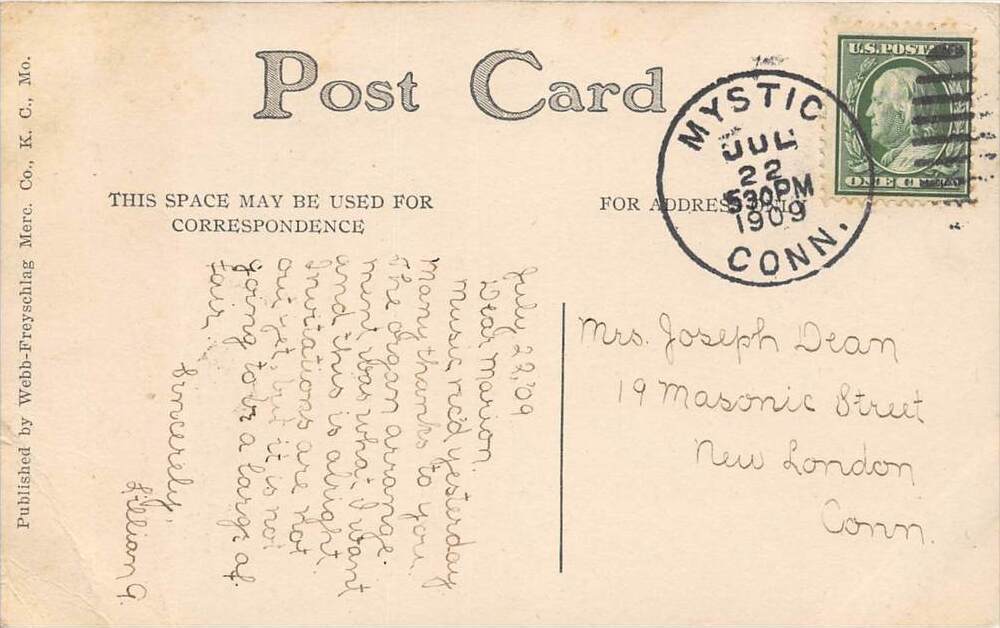 Post Card
THIS SPACE MAY BE USED FOR
CORRESPONDENCE
FOR ADDRESS ONLY
Published by Webb-Freyschlag Merc. Co., K. C., Mo.
MYSTIC
JUL
22
530PM
1909
CONN.
U.S. POSTAGE
ONE CENT
July 22, '09
Dear Marion,
Music rec'd yesterday
Many thanks to you.
The organ arrange-
ment was what I want
and this is alright.
Invitations are not
out yet, but it is not
going to be a large af-
fair.
Sincerely,
Lillian G.
Mrs. Joseph Dean
19 Masonic Street
New London
Conn.